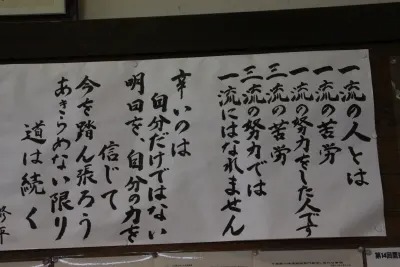 一流の人とは
一流の苦労
一流の努力をした人です
三流の苦労
三流の努力では
一流にはなれません
辛いのは
自分だけではない
明日を、自分の力を
信じて
今を踏ん張ろう
あきらめない限り
道は続く
修平
第14回